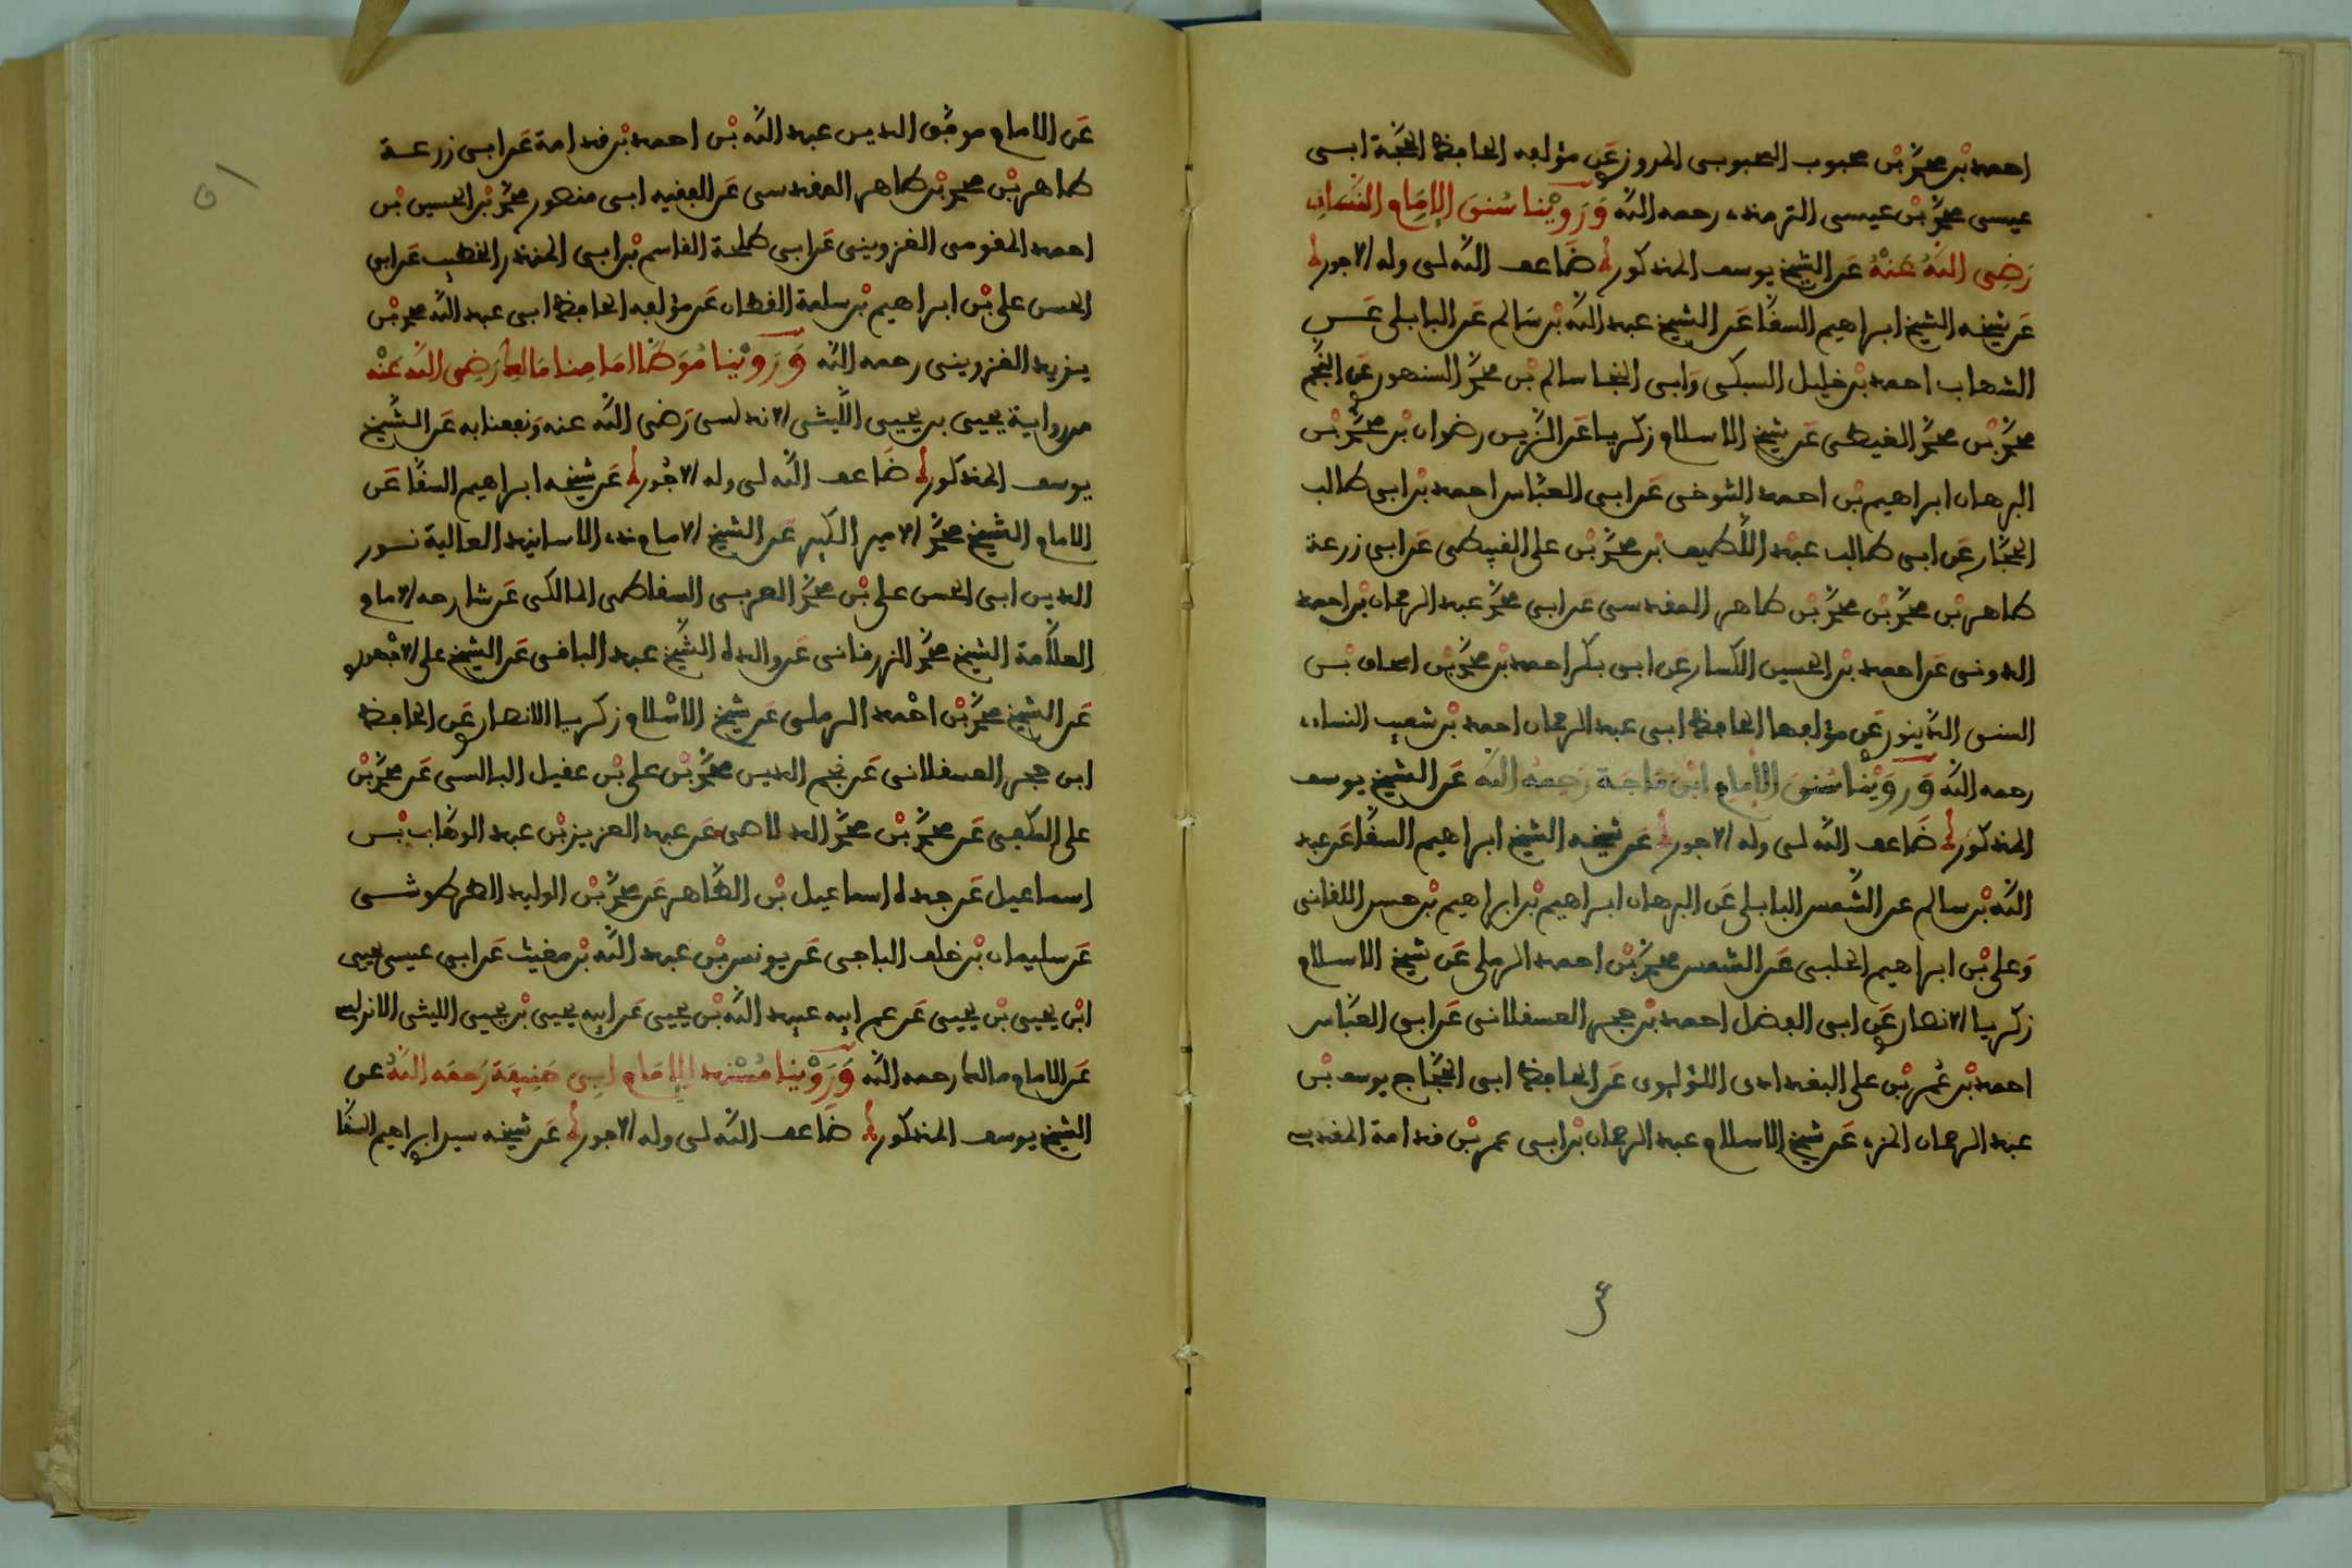 احمد بن محمد بن محبوب المحبوبى المروزى عن مؤلفه الحافظ الحجة ابى
عيسى محمد بن عيسى الترمذى رحمه الله وَرَوَيْنا سُنن الإمَام النَّسَائى
رَضِى اللهُ عَنْهُ عن الشيخ يوسف المذكور ضَاعف الله لى وله الاجور
عن شيخه الشيخ ابراهيم السقَّا عن الشيخ عبد الله بن سَالم عن البابلى عـن
الشهاب احمد بن خليل السبكى وَابى النجا سالم بن محمد السنهورى عن النجم
محمد بن محمد الغيطى عن شيخ الاسلام زكريا عن الزين رضوان بن محمد بْن
البرهان ابراهيم بن احمد التنوخى عن ابى العبّاس احمد بن ابى طالب
الحجّار عن ابى طالب عبْد اللّطيف بن محمد بْن على القبيطى عن ابى زرعة
طاهر بن محمد بْن محمد بْن طاهر المقدسى عن ابى محمد عبد الرحمان بن احمد
الدونى عن احمد بن الحسين الكسار عن ابى بكر احمد بن محمد بْن اسحاق بْـن
السنى الدّينورى عن مؤلفها الحافظ ابى عبد الرحمان احمد بْن شعيب النساءى
رحمه الله وَرَوَيْنا سُنن الإمام ابْن مَاجَة رَحِمهُ الله عن الشيخ يوسف
المذكور ضَاعف الله لى وله الاجور عن شيخه الشيخ ابراهيم السقَّا عن عبد
الله بْن سالم عن الشَّمس البابلى عن البرهان ابراهيم بْن ابراهيم بْن حسن اللقانى
وَعلى بْن ابراهيم الحلبى عن الشمس محمد بْن احمد الرملى عَن شيخ الاسلام
زكريا الانصارى عن ابى الفضل احمد بن حجر العسقلانى عن ابى العبَّاس
احمد بْن عُمر بْن على البغدادى اللؤلوى عن الحافظ ابى الحجَّاج يوسف بْن
عبد الرحمان المزى عن شيخ الاسلام عبد الرحمان بْن ابى عمر بْن قدامة المقدسى
عَن الامام موفّق الدين عبد الله بْن احمد بْن قدامة عن ابى زرعـة
طاهر بْن محمد بْن طاهر المقدسى عن الفقيه ابى منصور محمد بْن الحسين بْن
احمد المقومى القزوينى عن ابى طلحة القاسم بْن ابى المنذر الخطيب عن ابى
الحسن على بْن ابراهيم بْن سلمة القطان عن مؤلفه الحافظ ابى عبد الله محمد بْن
يزيد القزوينى رحمه الله وَرَوَيْنا مُوَطَّا امَامِنا مَالِك رَضِى الله عَنْه
من رواية يحيى بن يحيى اللَّيثى الاندلسى رَضى الله عنه وَنفعنا به عن الشَّيخ
يوسف المذكور ضَاعف الله لى وله الاجُور عن شيخه ابراهيم السقَّا عَن
الامام الشيخ محمَّد الامير الكبير عن الشيخ الامام ذى الاسانيد العالية نـور
الدين ابى الحسن على بْن محمّد العربى السقاطى المالكى عن شارحه الامام
العلاَّمة الشيخ محمّد الزرقانى عن والده الشَّيخ عبد الباقى عن الشيخ على الاجْهورى
عن الشيخ محمَّد بْن احْمد الرملى عن شيخ الاسْلام زكريا الانصارى عن الحافظ
ابن حجر العسقلانى عن نجم الدين محمّد بْن على بْن عقيل البالسى عن محمَّد بْن
على المكفى عن محمَّد بْن محمَّد الدلاهى عن عبد العزيز بْن عبد الوهّاب بْـن
اسماعيل عن جده اسماعيل بْن الطَّاهر عن محمّد بْن الوليد الطرطوشـى
عن سليمان بْن خلف الباجى عن يونس بْن عبد الله بْن مغيث عن ابى عيسى يحيى
ابْن يحيى بْن يحيى عن عم ابيه عبيد الله بْن يحيى عن ابيه يحيى بْن يحيى الليثى الاندلسى
عن الامام مالك رحمه الله وَرَوَيْنا مُسْند الإِمَام ابِى حَنِيفَة رَحمَه اللهُ عن
الشيخ يوسف المذكور ضَاعف الله لى وله الاجور عن شيخه سيدى ابراهيم السقَّا